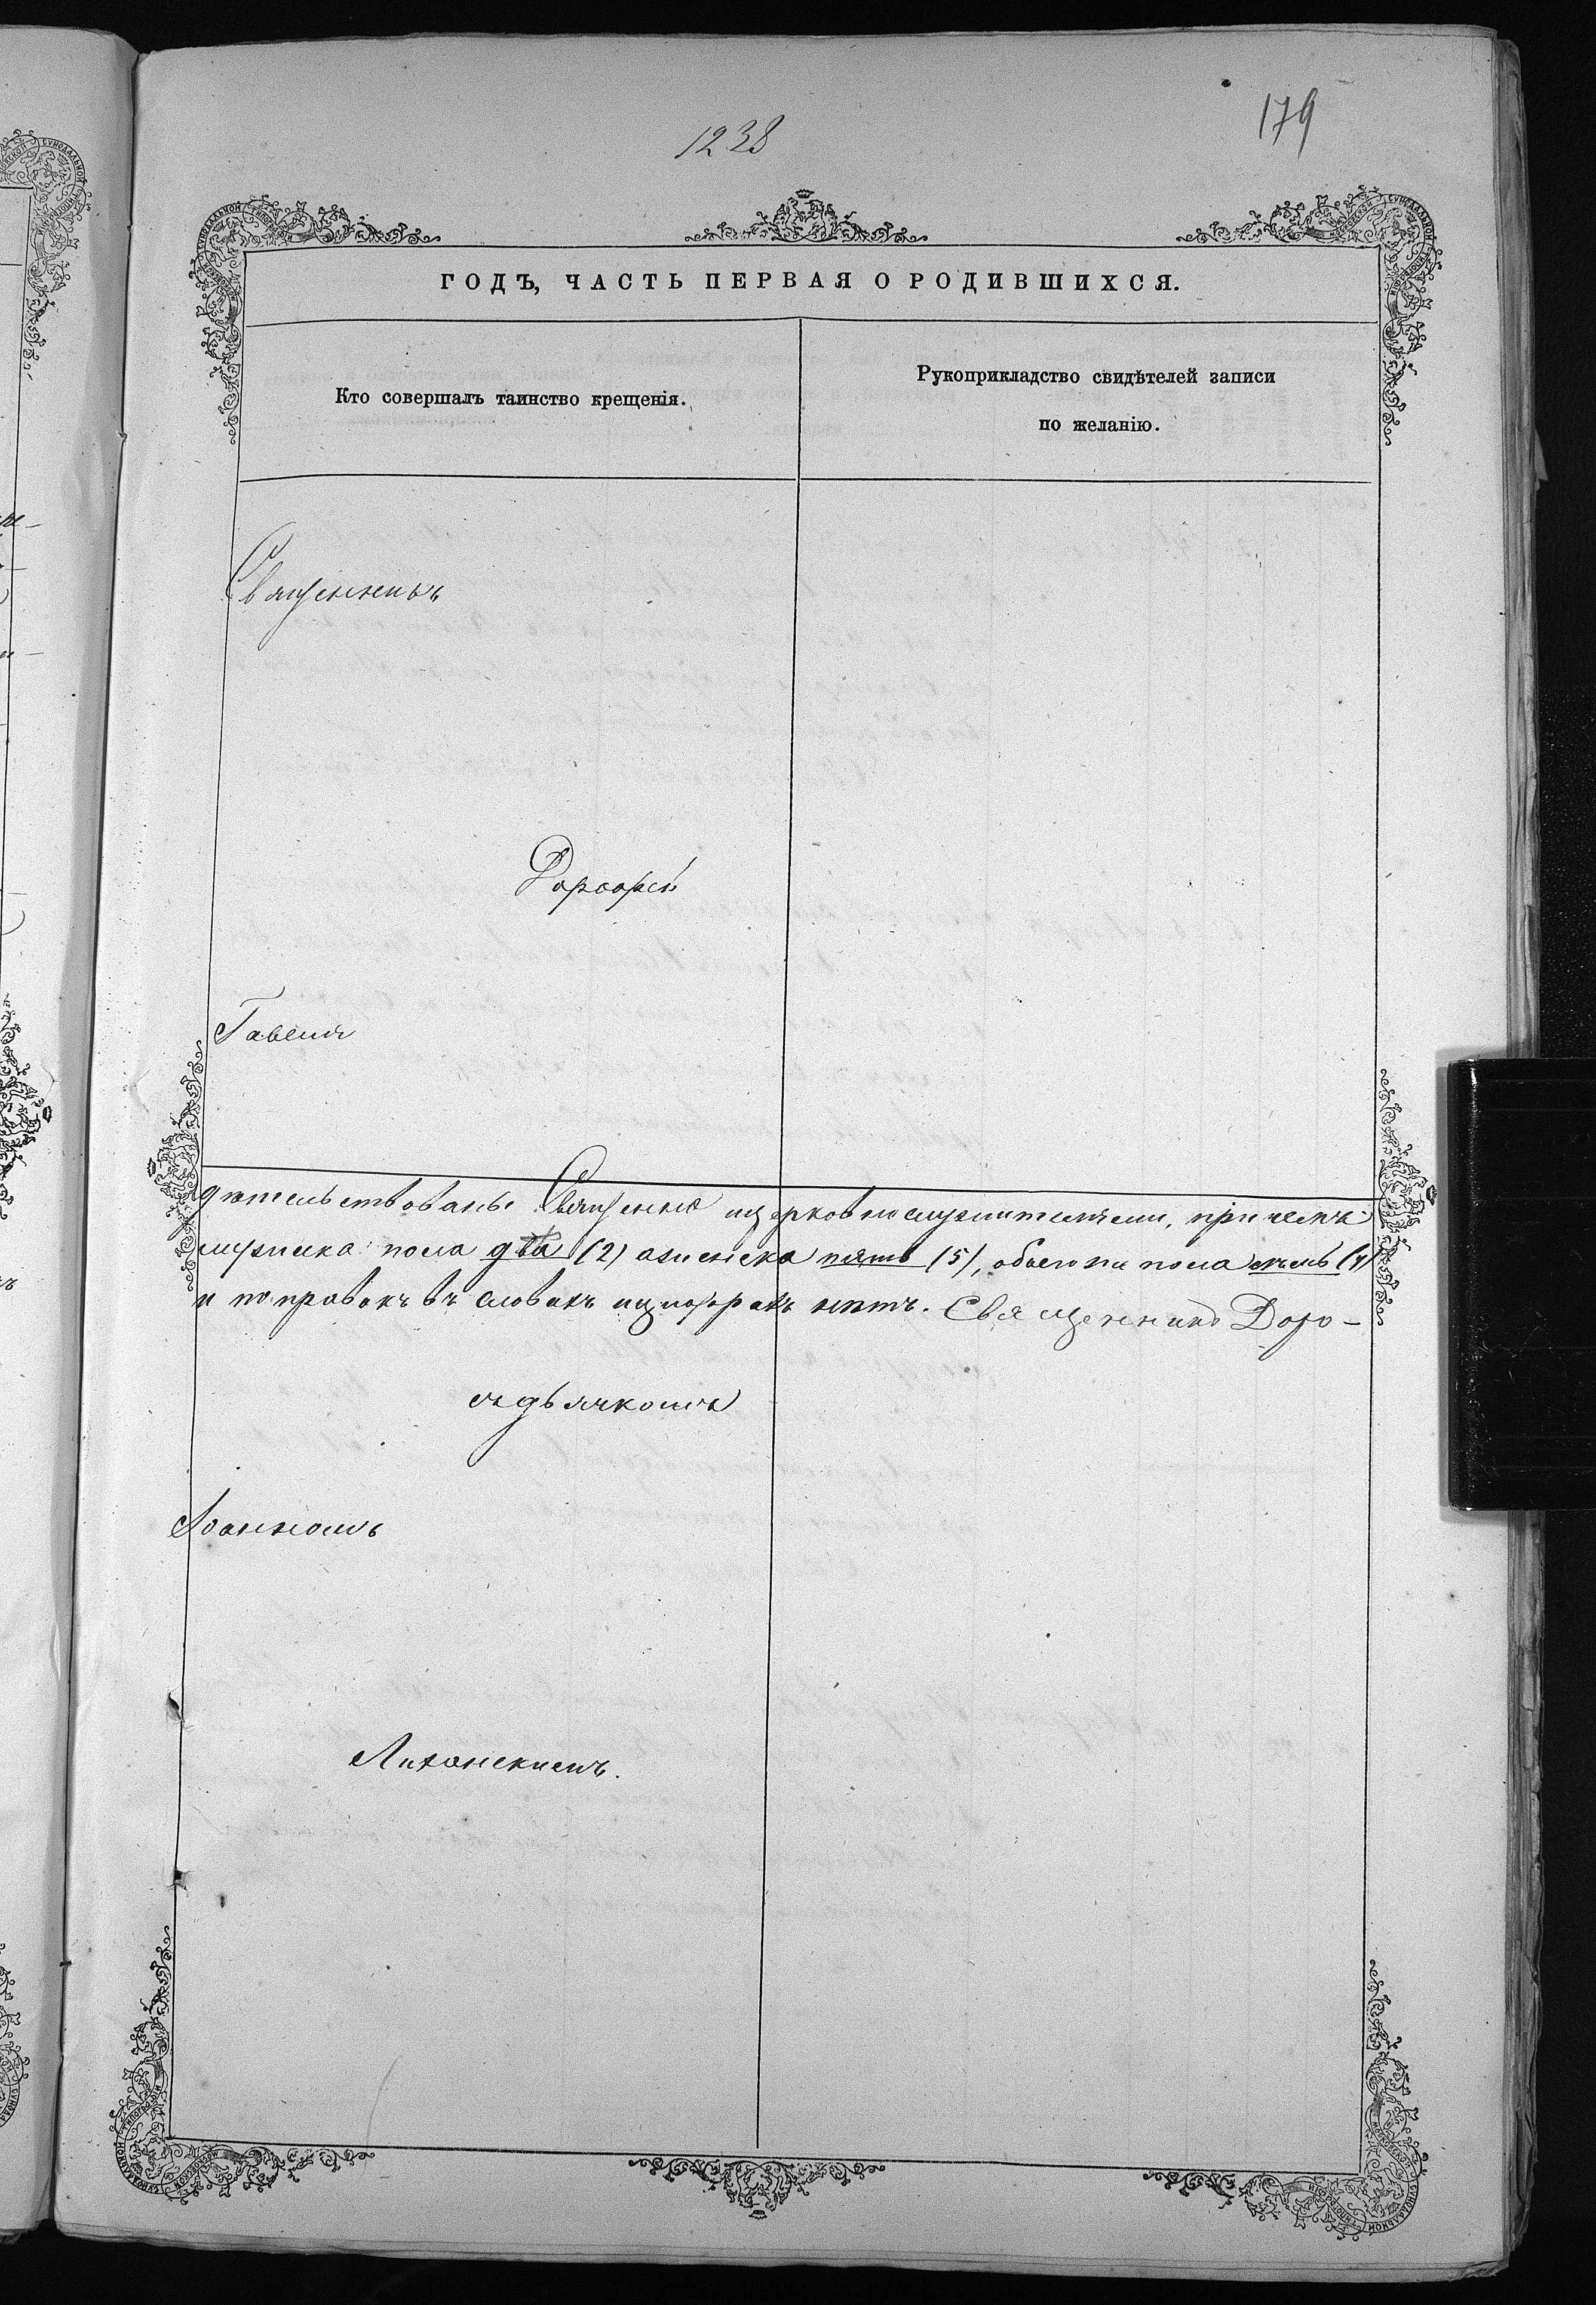 1238
179
ГОДЪ, ЧАСТЬ ПЕРВАЯ О РОДИВШИХСЯ.
Кто совершалъ таинство крещенія.
Рукоприкладство свидѣтелей записи
по желанію.
Священникъ
Дороѳей
дѣтельствованы Священно и церковнослужителями, при чемъ
мужеска пола два (2) а женска пять (5), обоего же пола семь (7)
и поправокъ въ словахъ и цыфрахъ нѣтъ. Священникъ Доро-
съ дьячкомъ
Іоанномъ